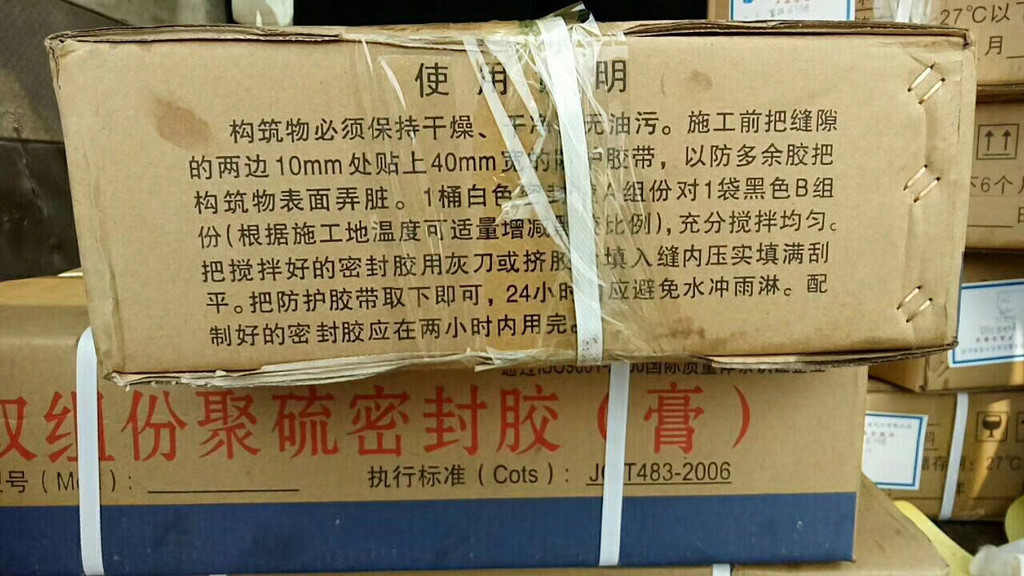 使用明
构筑物必须保持干燥、干净、无油污。施工前把缝隙
的两边10mm处贴上40mm宽的防护胶带，以防多余胶把
构筑物表面弄脏。1桶白色密封胶A组份对1袋黑色B组
份(根据施工地温度可适量增减比例),充分搅拌均匀。
把搅拌好的密封胶用灰刀或挤胶填入缝内压实填满刮
平。把防护胶带取下即可，24小时应避免水冲雨淋。配
制好的密封胶应在两小时内用完。
双组份聚硫密封胶（膏）
型号（M）：
执行标准（Cots）：JCT483-2006
27℃以下
月
下6个月
储存期：27℃
年